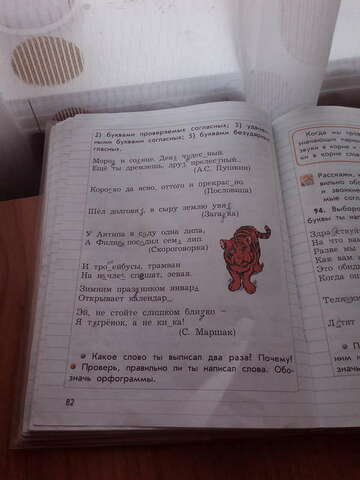 2) буквами проверяемых согласных; 3) удвоен-
ными буквами согласных; 5) буквами безударных
гласных.
Мороз и солнце. День чудесный.
Ещё ты дремлешь, друг прелестный.
(А.С. Пушкин)
Коротко да ясно, оттого и прекрасно
(Пословица)
Шёл долговяз, в сыру землю увяз.
(Загадка)
У Антипа в саду одна липа,
А Филипп посадил семь лип
(Скороговорка)
И троллейбусы, трамваи
На ночлег спешит, зевая.
Зимним праздником января
Открывает календарь.
Эй, не стойте слишком близко –
Я тигрёнок, а не киска!
(С. Маршак)
Какое слово ты выписал два раза? Почему?
Проверь, правильно ли ты написал слова. Обо-
значь орфограммы.
82
Когда мы про
в корне
и в корне слов
Расскажи,
вильно обо
и звонкие
мые соглас
94. Выборо
буквы ты на
На что
Разве мы
Как вам
Это обид
Когда